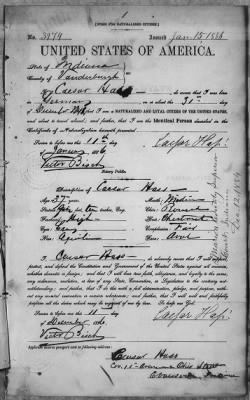 [FORM FOR NATURALIZED CITIZEN.]
No. 3974 Issued Jan. 15 1886
UNITED STATES OF AMERICA.
State of Indiana
County of Vanderburgh
I, Caesar Hass, do swear that I was born
in Germany, on or about the 31st day
of; that I am a NATURALIZED and LOYAL CITIZEN OF THE UNITED STATES,
and about to travel abroad; and further, that I am the Identical Person described in the
Certificate of Naturalization herewith presented.
Sworn to before me this 11th day
of January 1886
Victor Bisch
Notary Public.
Caspar Hass
Description of Caesar Hass
Age: 37 years
Mouth: Medium
Stature: inches, Eng.
Chin: Round
Forehead: High
Hair: Chestnut
Eyes: Gray
Complexion: Fair
Nose: Aquiline
Face: Oval
I, Caesar Hass, do solemnly swear that I will support,
protect, and defend the Constitution and Government of the United States against all enemies,
whether domestic or foreign; and that I will bear true faith, allegiance, and loyalty to the same,
any ordinance, resolution, or law of any State, Convention, or Legislature to the contrary notwithstanding;
and further, that I do this with a full determination, pledge, and purpose, without
any mental reservation or evasion whatsoever; and further, that I will well and faithfully
perform all the duties which may be required of me by law. So help me God.
Sworn to before me this 11 day
Victor Bisch
Caspar Hass
Applicant desires passport sent to following address:
Caesar Hass
Cor. Ohio Street
Evansville Indiana